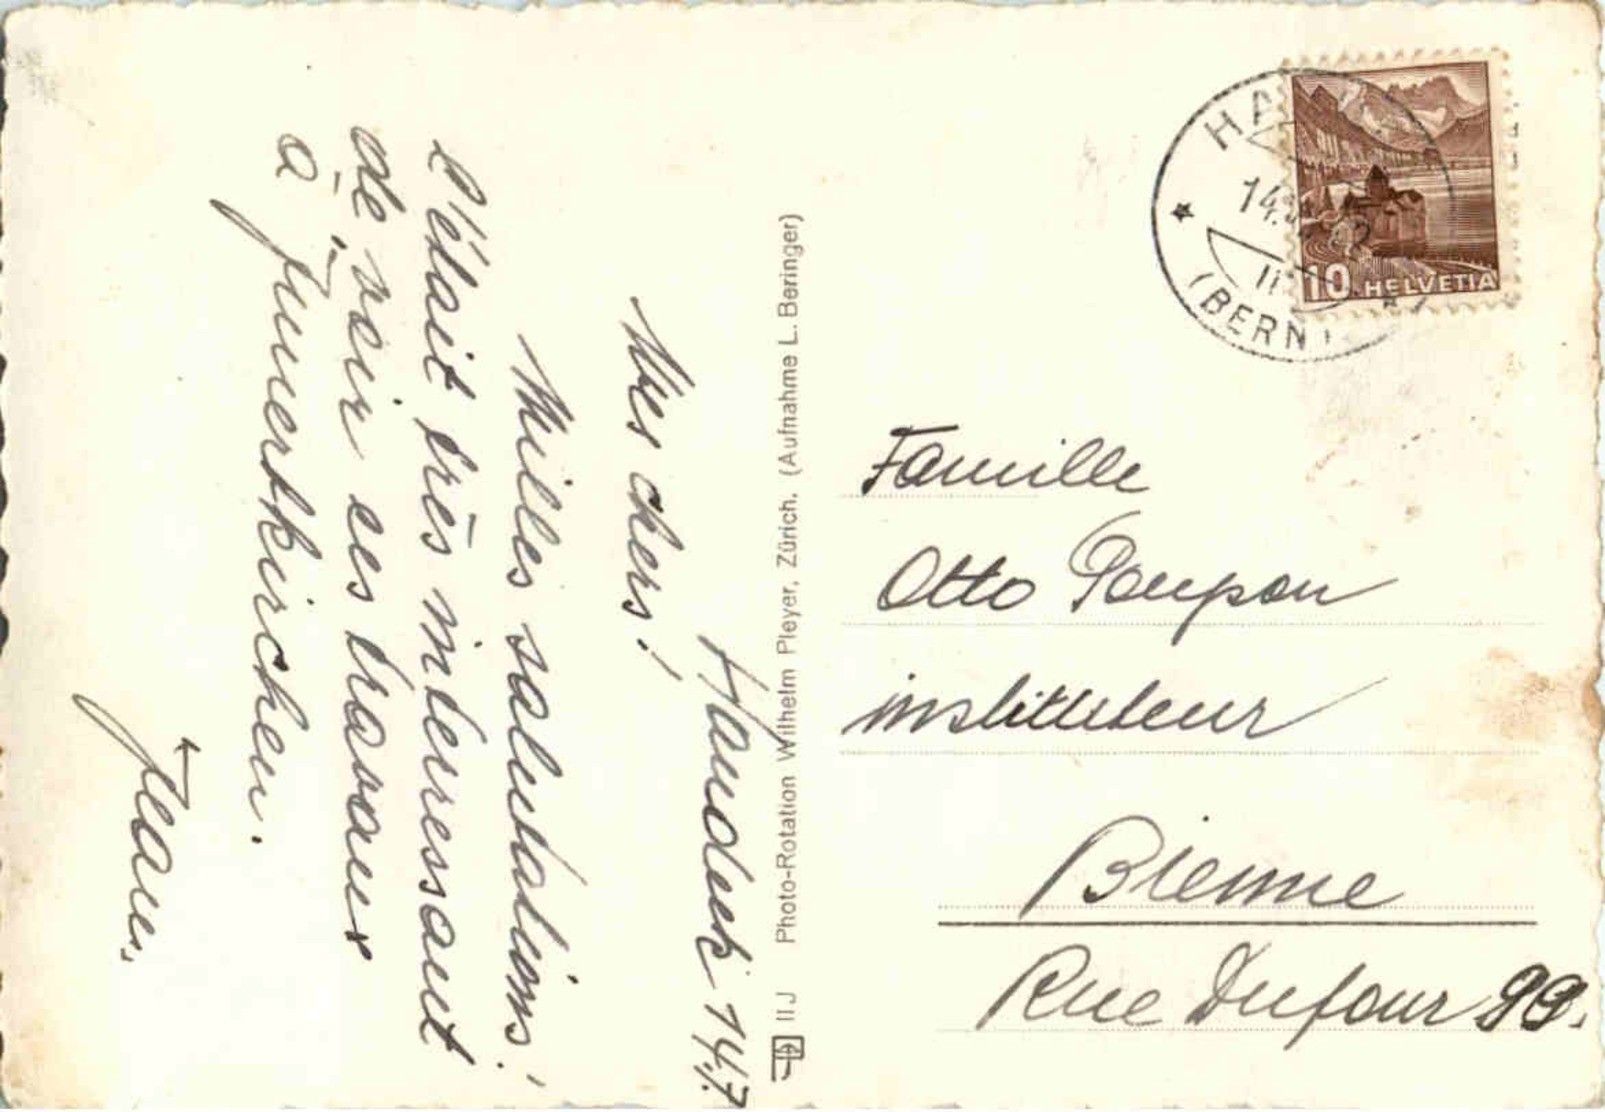 Handeck 14.7.
Mes chers!
Milles salutations!
C'était très interressant
de voir ces travaux
à Jnnertkirchen.
Jean.
IIJ Photo-Rotation Wilhelm Pleyer, Zürich. (Aufnahme L. Beringer)
14.
(BERN)
10 HELVETIA
Famille
Otto Poupon
instituteur
Bienne
Rue Dufour 99.